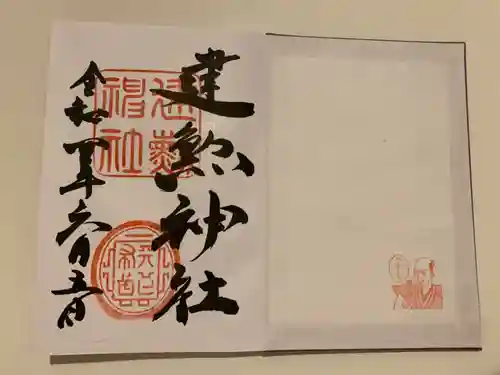 建勲神社
令和四年六月五日
建勲
神社